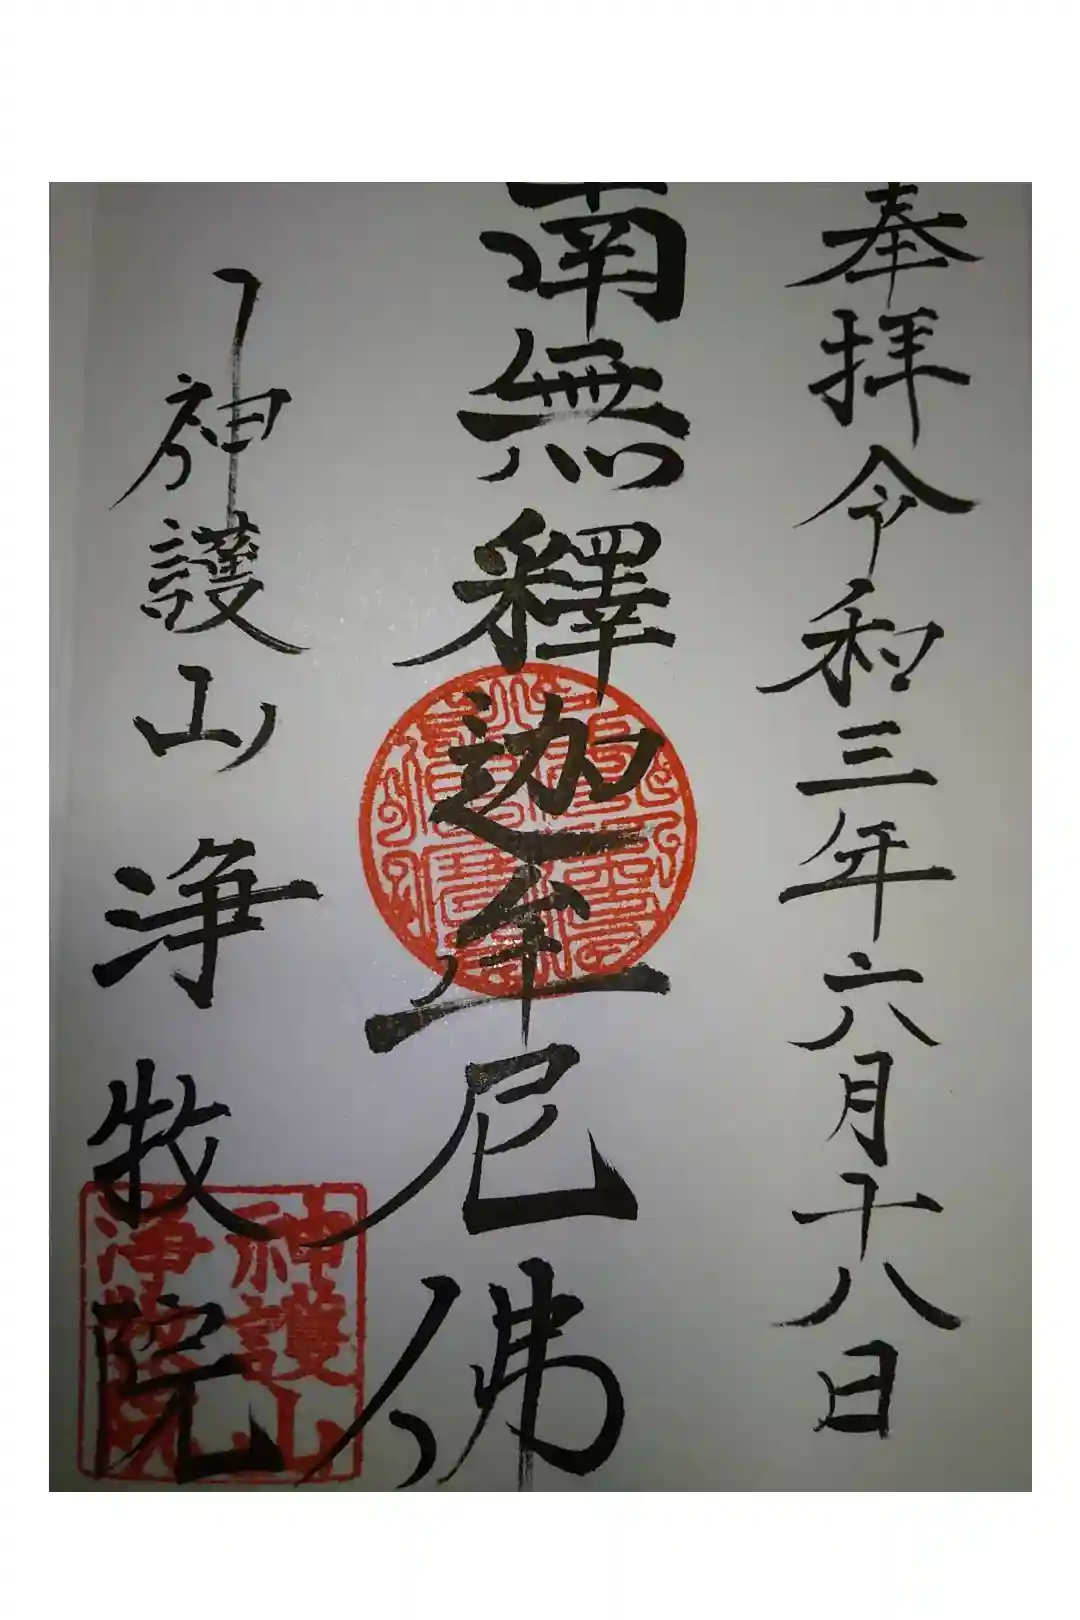 奉拝令和三年六月十八日
南無釋迦牟尼佛
神護山浄牧院
神護山
浄牧院